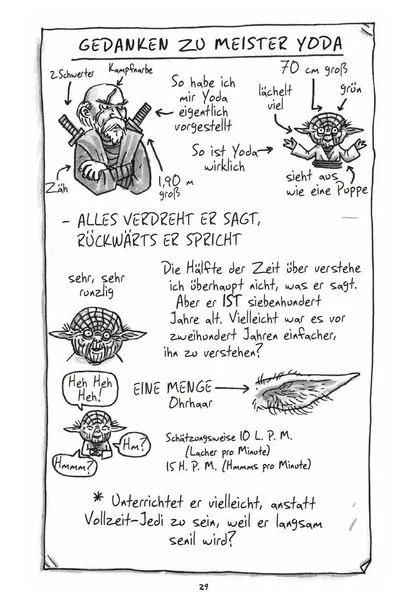 GEDANKEN ZU MEISTER YODA
2 Schwerter
Kampfnarbe
So habe ich
mir Yoda
eigentlich
vorgestellt
Zäh
1,90 m
groß
70 cm groß
lächelt
viel
grün
So ist Yoda
wirklich
sieht aus
wie eine Puppe
- ALLES VERDREHT ER SAGT,
RÜCKWÄRTS ER SPRICHT
sehr, sehr
runzlig
Die Hälfte der Zeit über verstehe
ich überhaupt nicht, was er sagt.
Aber er IST siebenhundert
Jahre alt. Vielleicht war es vor
zweihundert Jahren einfacher,
ihn zu verstehen?
Heh Heh
Heh!
Hm?
Hmmm?
EINE MENGE
Ohrhaar
Schätzungsweise 10 L. P. M.
(Lacher pro Minute)
15 H. P. M. (Hmmms pro Minute)
* Unterrichtet er vielleicht, anstatt
Vollzeit-Jedi zu sein, weil er langsam
senil wird?
29